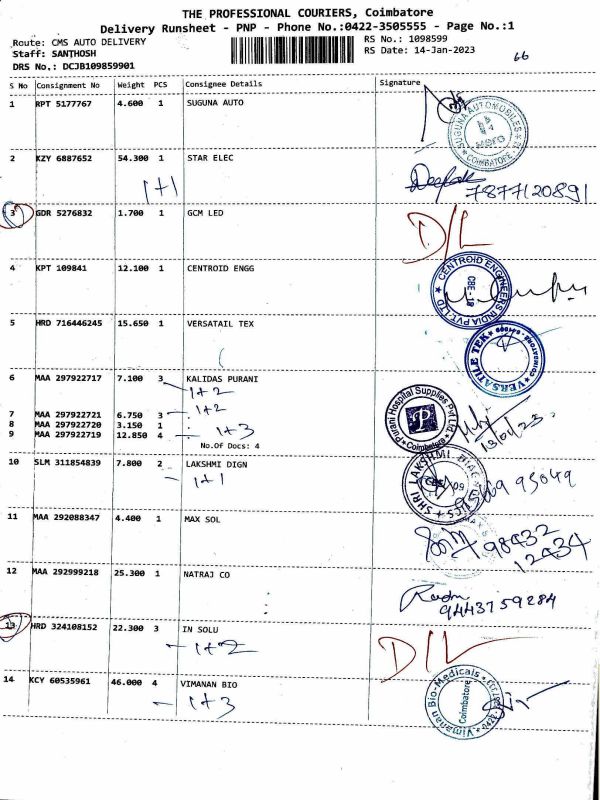 THE PROFESSIONAL COURIERS, Coimbatore
Delivery Runsheet - PNP - Phone No.:0422-3505555 - Page No.:1
Route: CMS AUTO DELIVERY
RS No.: 1098599
Staff: SANTHOSH
RS Date: 14-Jan-2023
66
DRS No.: DCJB109859901
S No Consignment No Weight PCS Consignee Details Signature
1 RPT 5177767 4.600 1 SUGUNA AUTO
SUGUNA AUTOMOBILES
COIMBATORE
2 KZY 6887652 54.300 1 STAR ELEC
1+1
Deepak
7877120891
3 GDR 5276832 1.700 1 GCM LED
D/L
4 KPT 109841 12.100 1 CENTROID ENGG
CENTROID ENGINEERS INDIA PVT LTD
CBE-18
5 HRD 716446245 15.650 1 VERSATAIL TEX
VERSATILE TEK
COIMBATORE-641006
6 MAA 297922717 7.100 3 KALIDAS PURANI
1+2
7 MAA 297922721 6.750 3
1+2
8 MAA 297922720 3.150 1
9 MAA 297922719 12.850 4
1+3
No.Of Docs: 4
Purani Hospital Supplies Pvt Ltd
P
Coimbatore
10 SLM 311854839 7.800 2 LAKSHMI DIGN
1+1
SHRI LAKSHMI
95049
11 MAA 292088347 4.400 1 MAX SOL
98432
12434
12 MAA 292999218 25.300 1 NATRAJ CO
9443759284
13 HRD 324108152 22.300 3 IN SOLU
1+2
D/L
14 KCY 60535961 46.000 4 VIMANAN BIO
1+3
Vimanan Bio-Medicals
Coimbatore